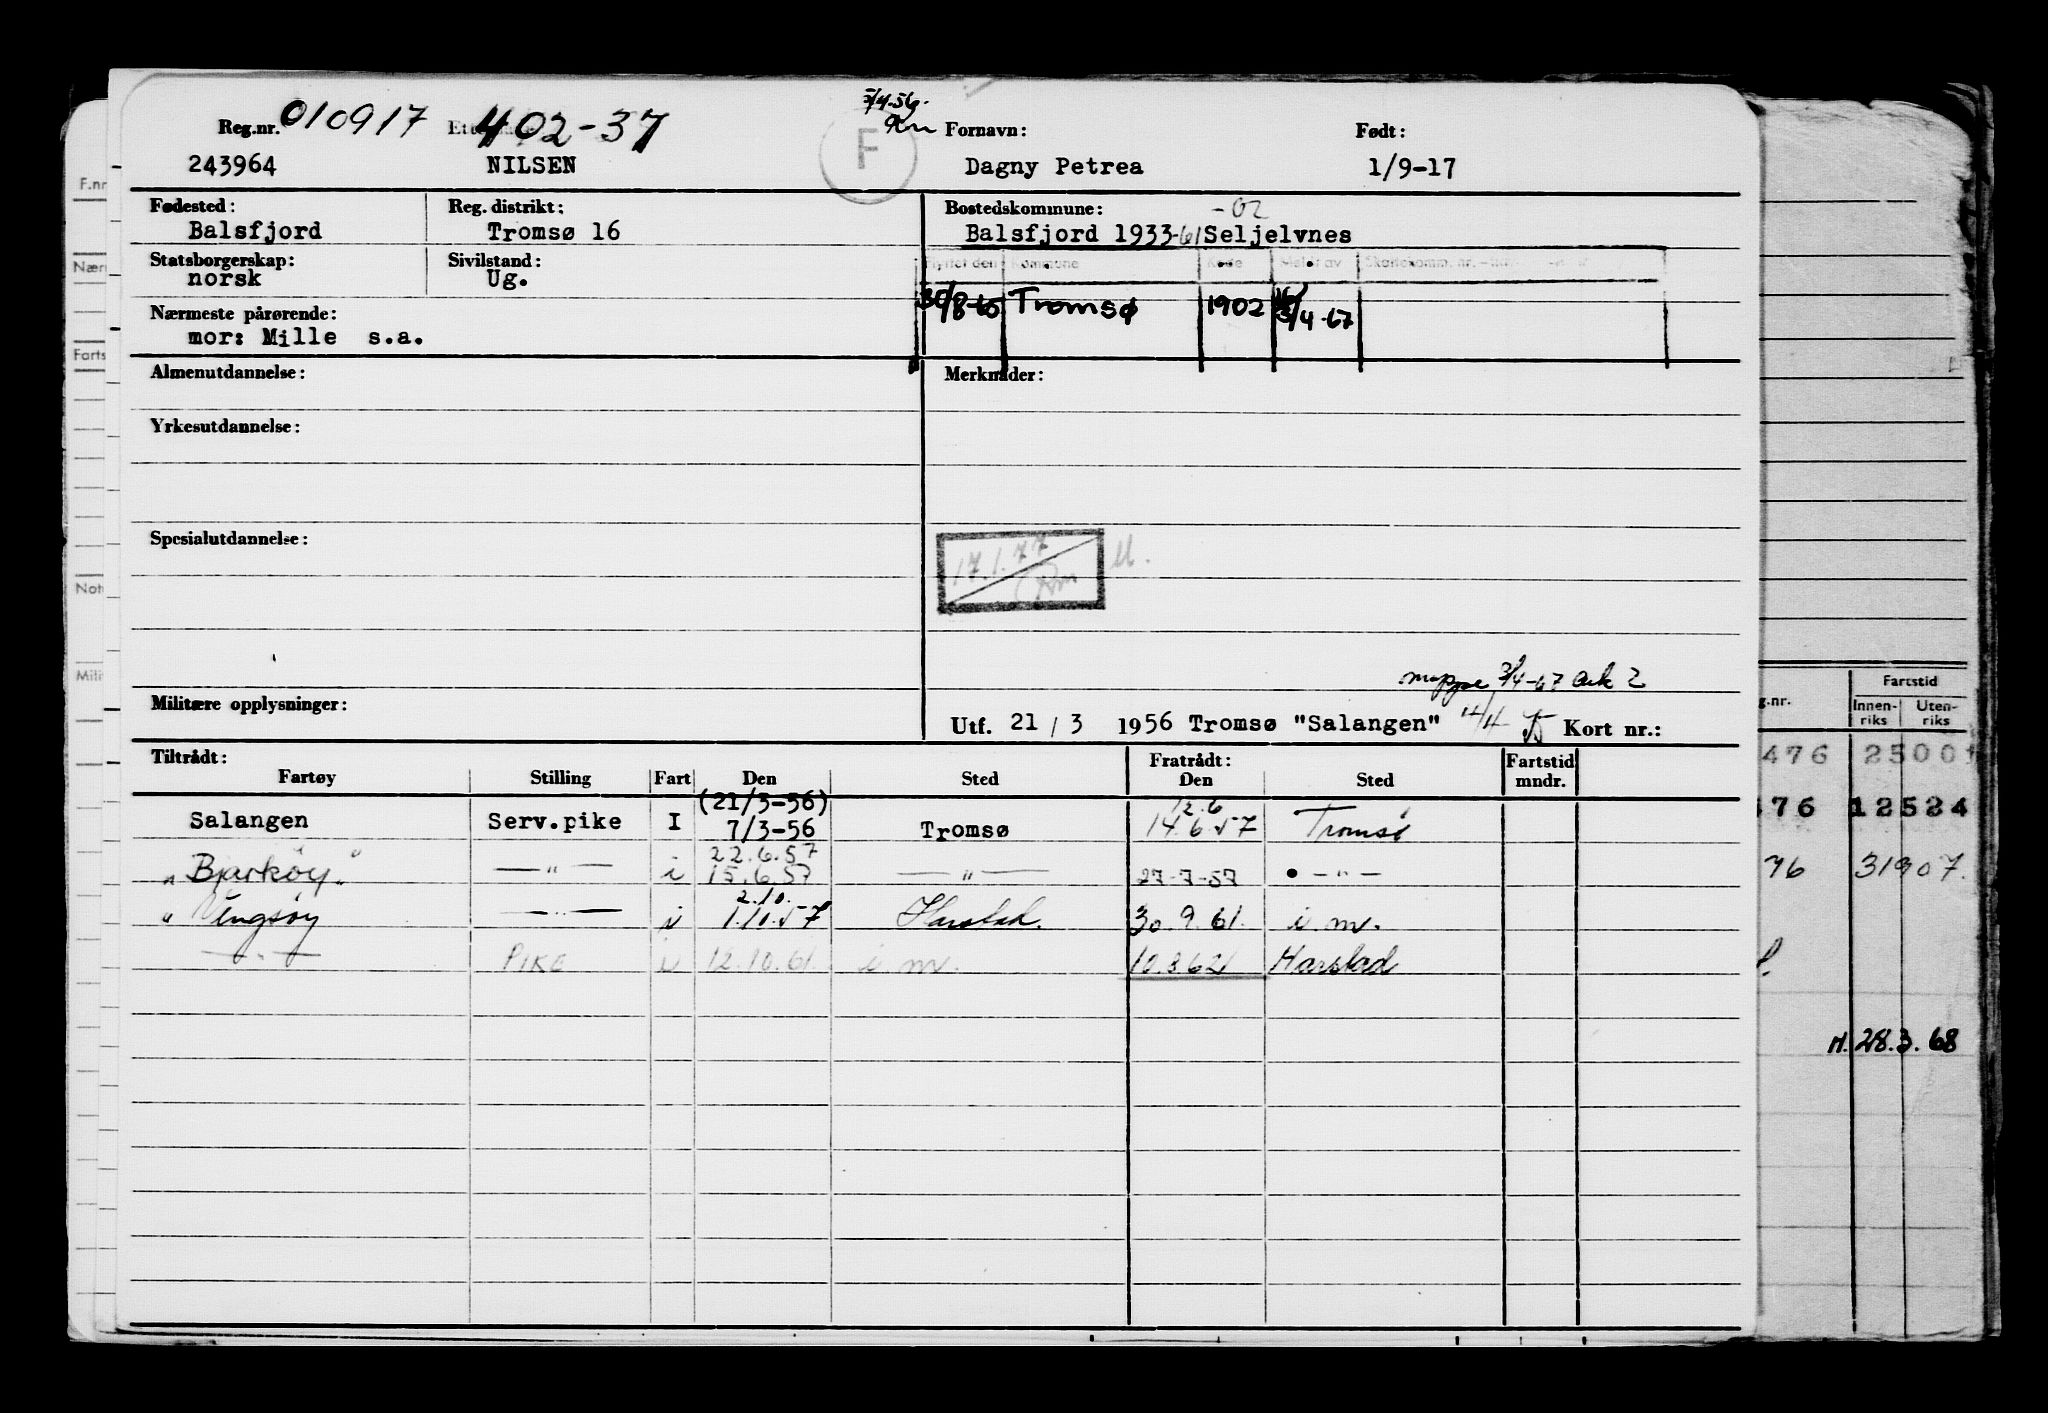 3/4-56.
Reg.nr. 010917 402-37 Fornavn: Født:
243964 NILSEN F Dagny Petrea 1/9-17
Fødested: Reg. distrikt: Bostedskommune: -02
Balsfjord Tromsø 16 Balsfjord 1933-61 Seljelvnes
Statsborgerskap: Sivilstand: Flyttet den Kommune Kode Meldt av
norsk Ug.
30/8-65 Tromsø 1902 3/4-67
Nærmeste pårørende:
mor: Mille s.a.
Almenutdannelse: Merknader:
Yrkesutdannelse:
Spesialutdannelse:
17.1.77
mappe 3/4-67 ark 2
Militære opplysninger:
Utf. 21 / 3 1956 Tromsø "Salangen" Kort nr.:
Tiltrådt: Fratrådt: Fartstid
Fartøy Stilling Fart Den Sted Den Sted mndr.
(21/3-56) 12.6
Salangen Serv.pike I 7/3-56 Tromsø 14.6.57 Tromsø
22.6.57
"Bjarkøy" —"— i 15.6.57 —"— 27-7-57 —"—
2.10.
" Vengsøy —"— i 1.10.57 Harstad. 30.9.61. i.m.
—"— PIKE i 12.10.61. i.m. 10.8.62 Harstad
F.nr
Nærr
Farts
Not
Mili
g.nr. Fartstid
Innen-riks Uten-riks
476 25001
476 12524
76 31907.
28.3.68